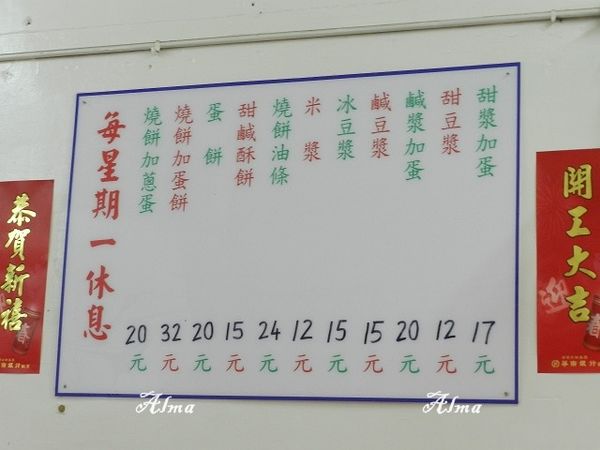 甜漿加蛋 17元
甜豆漿 12元
鹹漿加蛋 20元
鹹豆漿 15元
冰豆漿 15元
米漿 12元
燒餅油條 24元
甜鹹酥餅 15元
蛋餅 20元
燒餅加蛋餅 32元
燒餅加蔥蛋 20元
每星期一休息
開工大吉
迎
春
恭賀新禧
春
Alma
Alma